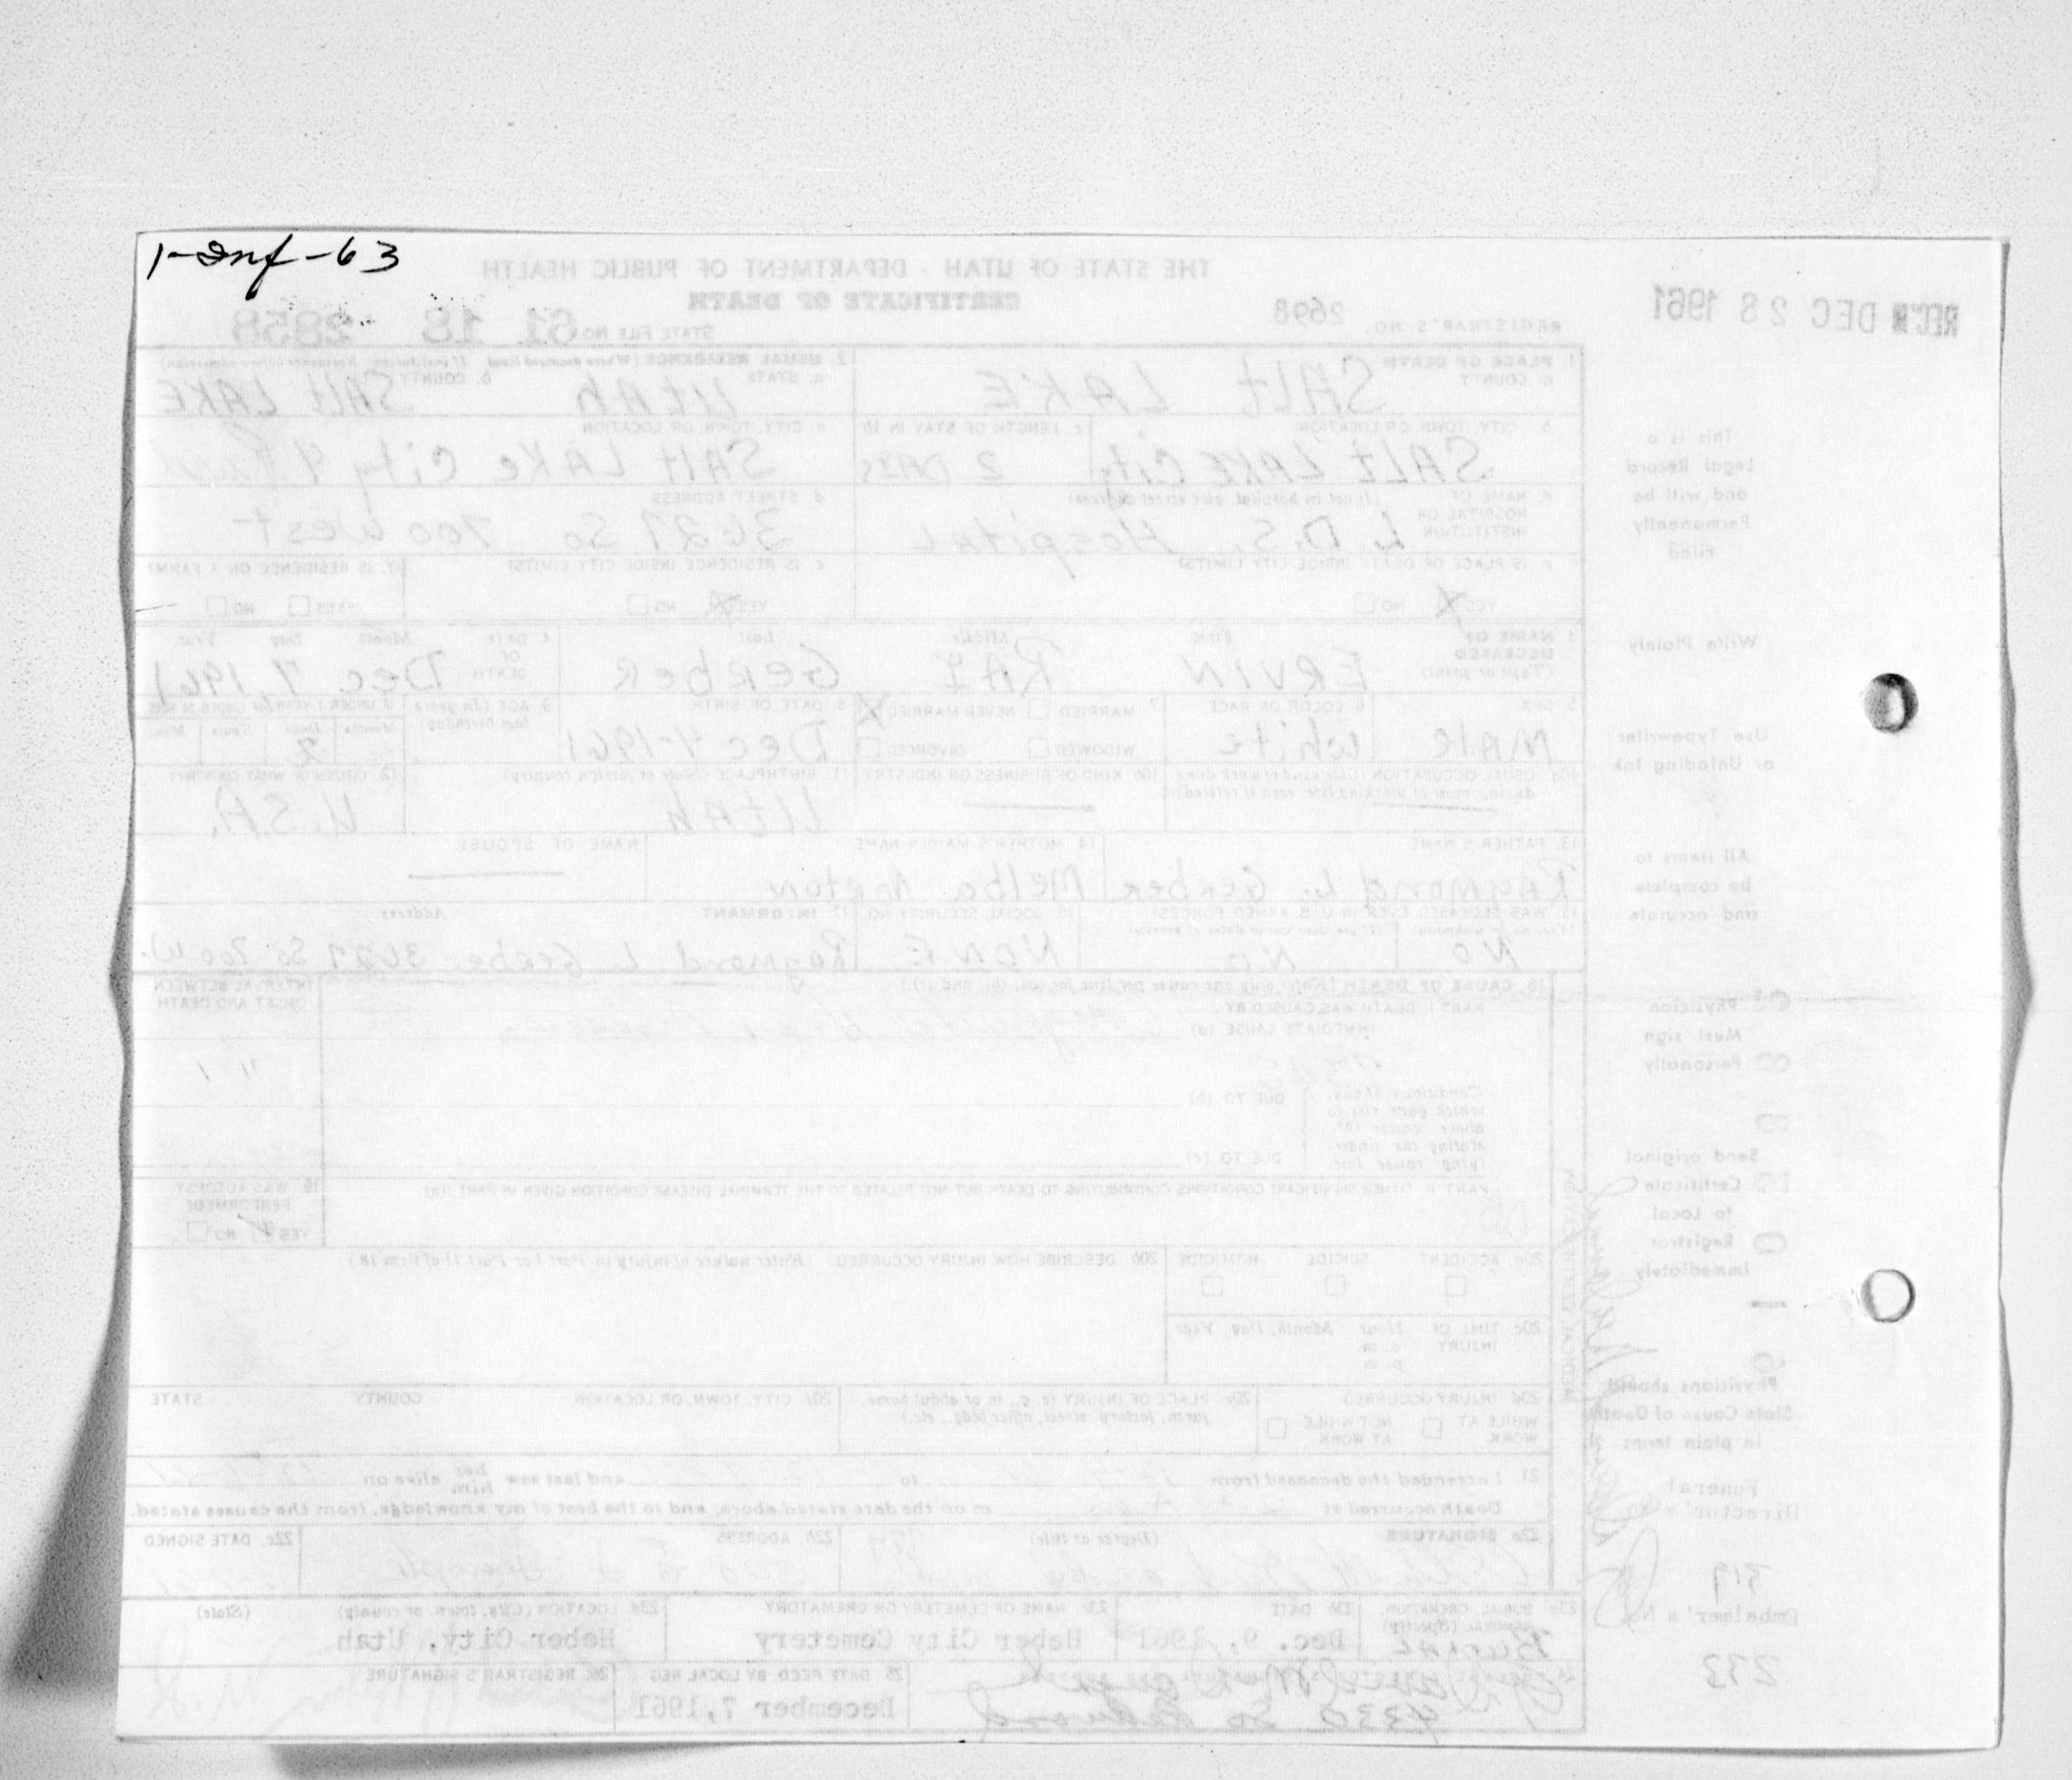 1-Inf-63
THE STATE OF UTAH - DEPARTMENT OF PUBLIC HEALTH
CERTIFICATE OF DEATH
REC'D DEC 28 1961
REGISTRAR'S NO. 2698
STATE FILE NO 61 18 2858
1. PLACE OF DEATH
a. COUNTY SALT LAKE
2. USUAL RESIDENCE (Where deceased lived. If institution: Residence before admission)
a. STATE UTAH b. COUNTY SALT LAKE
b. CITY, TOWN, OR LOCATION SALT LAKE City
c. LENGTH OF STAY IN 1b 2 DAYS
c. CITY, TOWN, OR LOCATION SALT LAKE City
d. NAME OF HOSPITAL OR INSTITUTION (If not in hospital, give street address) L.D.S. Hospital
d. STREET ADDRESS 3627 So 700 West
e. IS PLACE OF DEATH INSIDE CITY LIMITS?
YES X NO
e. IS RESIDENCE INSIDE CITY LIMITS?
YES X NO
f. IS RESIDENCE ON A FARM?
YES NO
3. NAME OF DECEASED (Type or print) First Middle Last
ERVIN RAY GERBER
4. DATE OF DEATH Month Day Year
DEC 7, 1961
5. SEX Male
6. COLOR OR RACE White
7. MARRIED NEVER MARRIED X
WIDOWED DIVORCED
8. DATE OF BIRTH DEC 4-1961
9. AGE (In years last birthday) IF UNDER 1 YEAR IF UNDER 24 HRS
Months Days Hours Min.
10a. USUAL OCCUPATION (Give kind of work done during most of working life, even if retired)
10b. KIND OF BUSINESS OR INDUSTRY
11. BIRTHPLACE (State or foreign country) UTAH
12. CITIZEN OF WHAT COUNTRY? U.S.A.
13. FATHER'S NAME Raymond L. Gerber
14. MOTHER'S MAIDEN NAME Melba Norton
NAME OF SPOUSE
15. WAS DECEASED EVER IN U. S. ARMED FORCES?
NO NO
16. SOCIAL SECURITY NO. NONE
17. INFORMANT Address
Raymond L. Gerber 3627 So 700 W.
18. CAUSE OF DEATH (Enter only one cause per line for (a), (b), and (c).)
PART I. DEATH WAS CAUSED BY:
IMMEDIATE CAUSE (a)
Conditions, if any, which gave rise to above cause (a), stating the underlying cause last
DUE TO (b)
DUE TO (c)
INTERVAL BETWEEN ONSET AND DEATH
PART II. OTHER SIGNIFICANT CONDITIONS CONTRIBUTING TO DEATH BUT NOT RELATED TO THE TERMINAL DISEASE CONDITION GIVEN IN PART I(a)
19. WAS AUTOPSY PERFORMED?
YES NO
20a. ACCIDENT SUICIDE HOMICIDE
20b. DESCRIBE HOW INJURY OCCURRED (Enter nature of injury in Part I or Part II of item 18.)
20c. TIME OF INJURY Hour Month, Day, Year
a.m.
p.m.
20d. INJURY OCCURRED
WHILE AT WORK NOT WHILE AT WORK
20e. PLACE OF INJURY (e.g., in or about home, farm, factory, street, office bldg., etc.)
20f. CITY, TOWN, OR LOCATION COUNTY STATE
21. I attended the deceased from to and last saw her him alive on
Death occurred at m on the date stated above; and to the best of my knowledge, from the causes stated.
22a. SIGNATURE (Degree or title)
22b. ADDRESS
22c. DATE SIGNED
23a. BURIAL, CREMATION, REMOVAL (Specify) Burial
23b. DATE Dec. 9, 1961
23c. NAME OF CEMETERY OR CREMATORY Heber City Cemetery
23d. LOCATION (City, town, or county) (State)
Heber City, Utah
25. DATE RECD BY LOCAL REG. December 7, 1961
26. REGISTRAR'S SIGNATURE
MEDICAL CERTIFICATION
This is a
Legal Record
and will be
Permanently
Filed
Write Plainly
Use Typewriter
or Unfading Ink
All items to
be complete
and accurate
Physician
Must sign
Personally
Send original
Certificate
to Local
Registrar
immediately
Physicians should
State Cause of Death
in plain terms
Funeral
Director's No.
319
Embalmer's No.
233